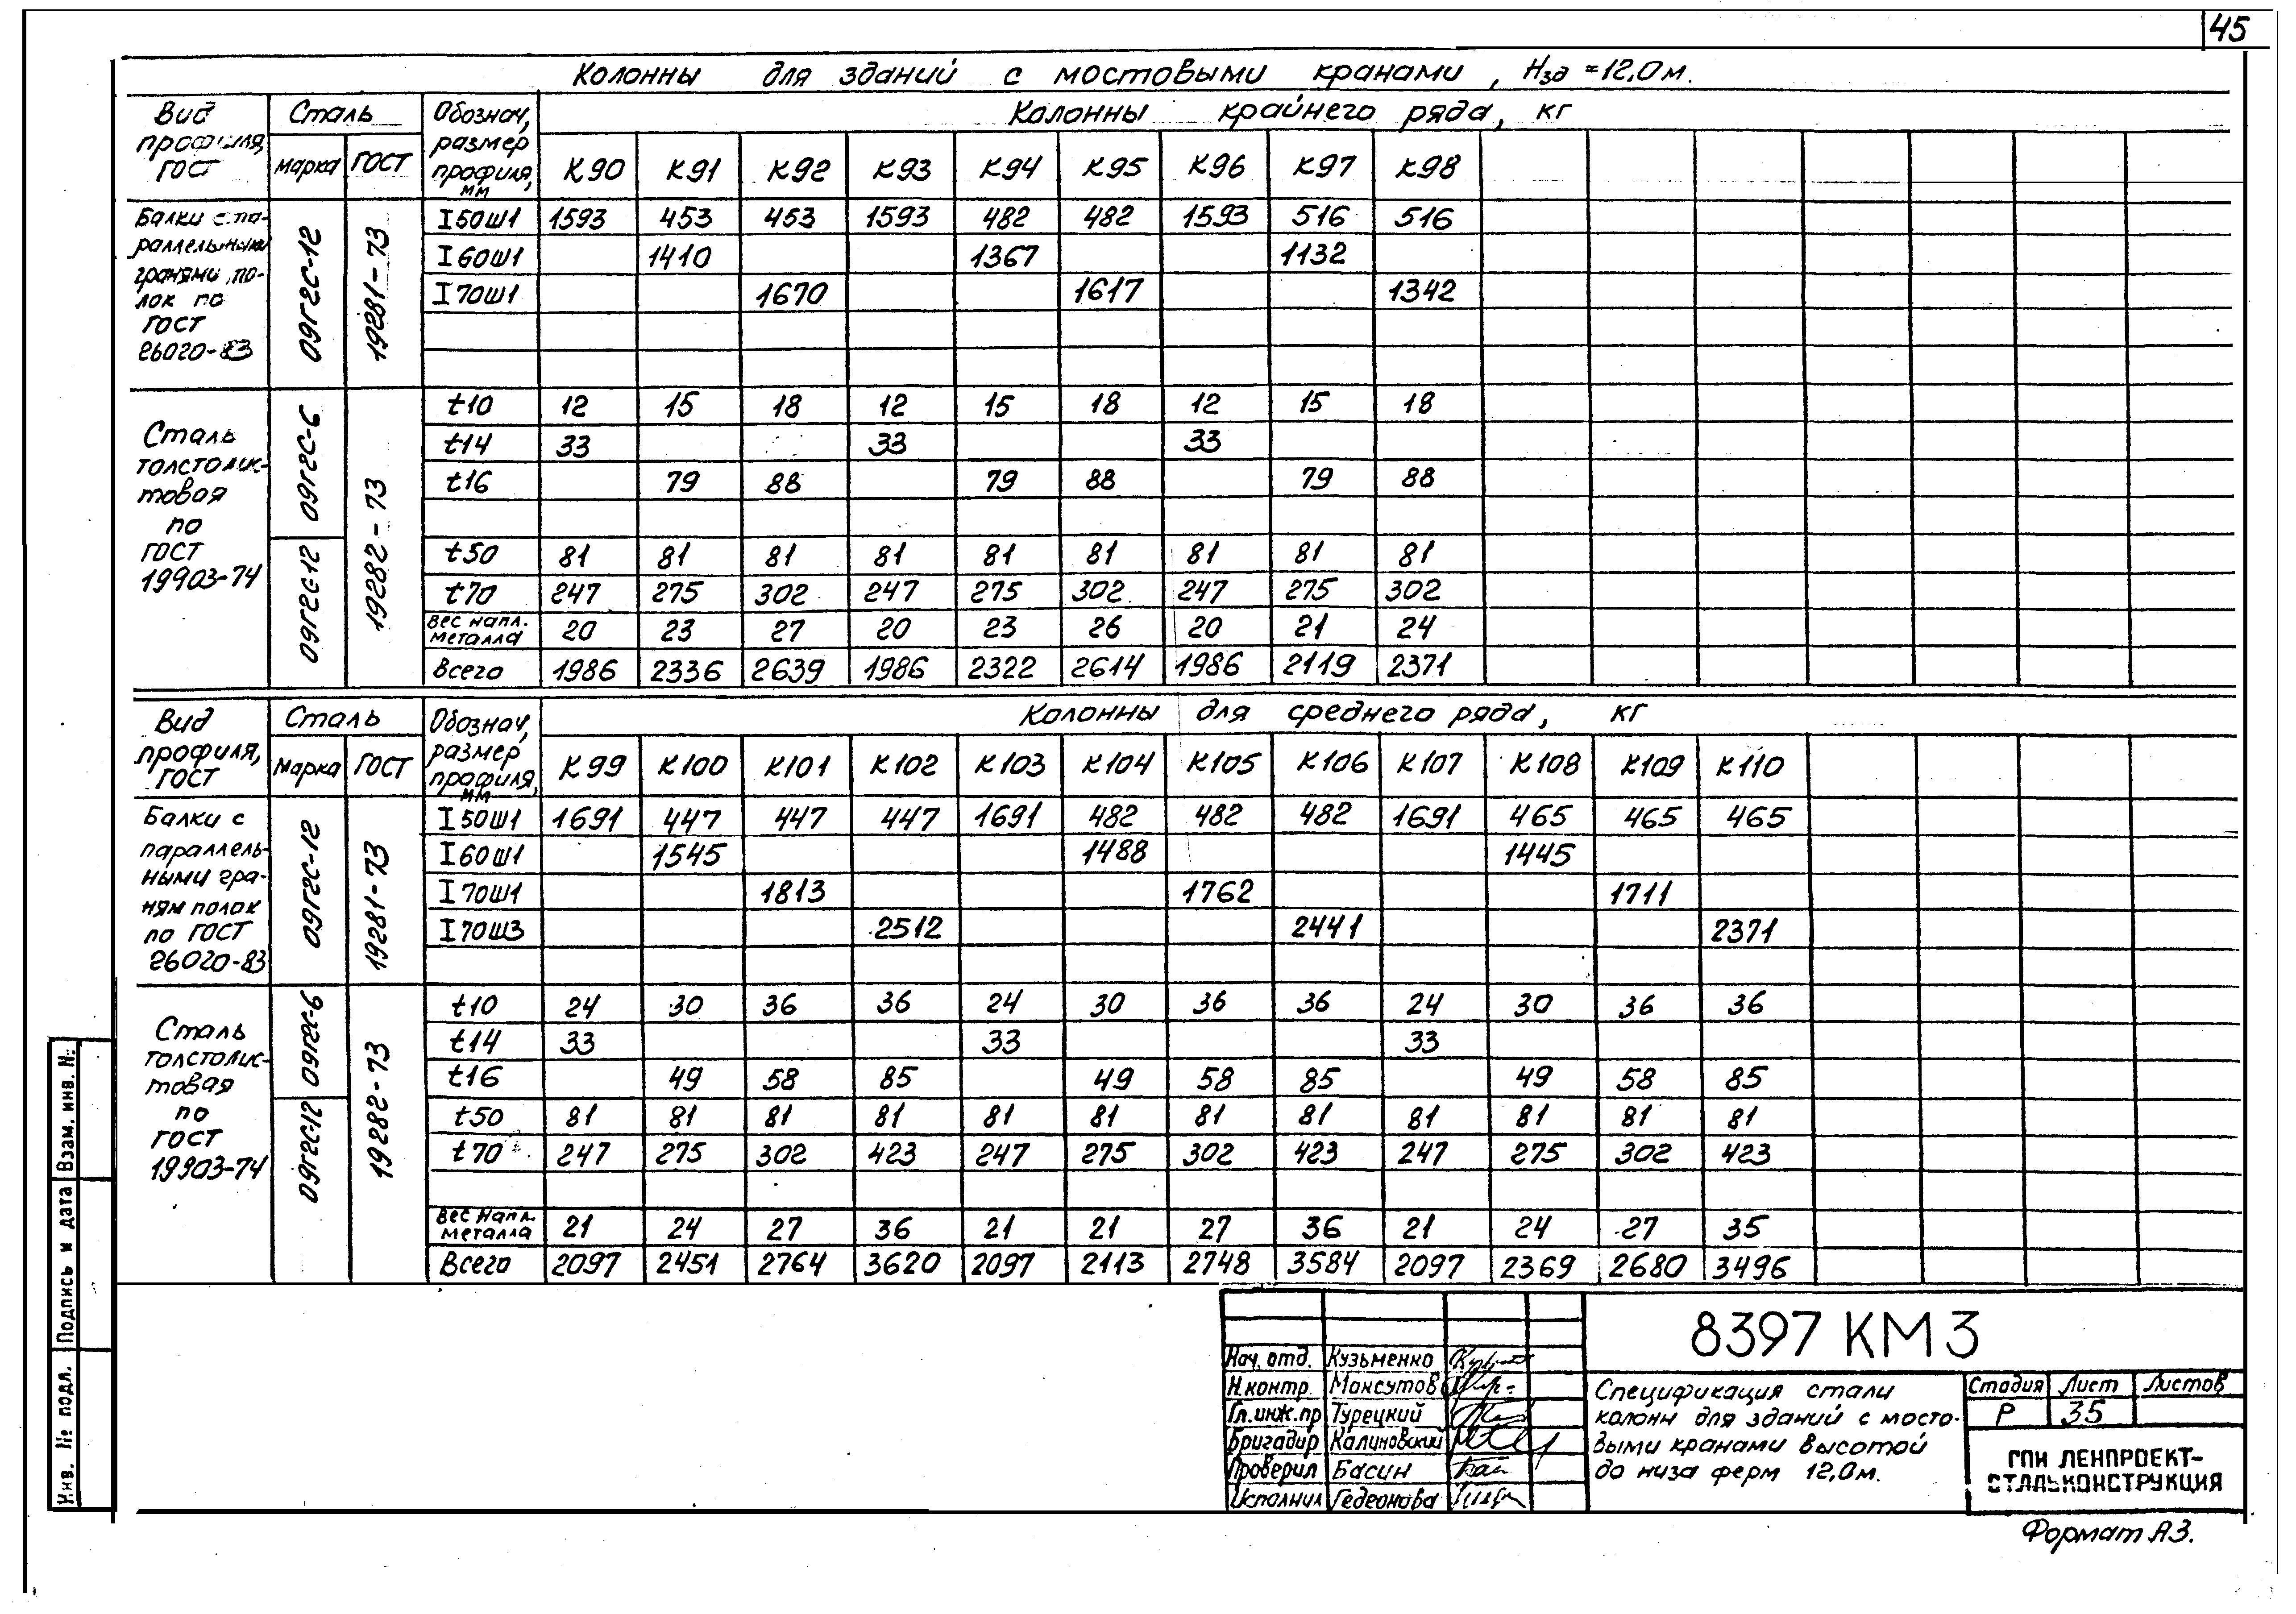 45
Колонны для зданий с мостовыми кранами, Нзд =12,0м.
Вид профиля, ГОСТ
Сталь
марка ГОСТ
Обознач, размер профиля, мм
Колонны крайнего ряда, кг
К90 К91 К92 К93 К94 К95 К96 К97 К98
Балки с па-
раллельными
гранями по-
лок по
ГОСТ
26020-83
09Г2С-12
19281-73
I50Ш1 1593 453 453 1593 482 482 1593 516 516
I60Ш1 1410 1367 1132
I70Ш1 1670 1617 1342
Сталь
толстолис-
товая
по
ГОСТ
19903-74
09Г2С-6
09Г2С-12
19282-73
t10 12 15 18 12 15 18 12 15 18
t14 33 33 33
t16 79 88 79 88 79 88
t50 81 81 81 81 81 81 81 81 81
t70 247 275 302 247 275 302 247 275 302
Вес напл. металла 20 23 27 20 23 26 20 21 24
Всего 1986 2336 2639 1986 2322 2614 1986 2119 2371
Вид профиля, ГОСТ
Сталь
марка ГОСТ
Обознач, размер профиля, мм
Колонны для среднего ряда, кг
К99 К100 К101 К102 К103 К104 К105 К106 К107 К108 К109 К110
Балки с
параллель-
ными гра-
ням полок
по ГОСТ
26020-83
09Г2С-12
19281-73
I50Ш1 1691 447 447 447 1691 482 482 482 1691 465 465 465
I60Ш1 1545 1488 1445
I70Ш1 1813 1762 1711
I70Ш3 2512 2441 2371
Сталь
толстолис-
товая
по
ГОСТ
19903-74
09Г2С-6
09Г2С-12
19282-73
t10 24 30 36 36 24 30 36 36 24 30 36 36
t14 33 33 33
t16 49 58 85 49 58 85 49 58 85
t50 81 81 81 81 81 81 81 81 81 81 81 81
t70 247 275 302 423 247 275 302 423 247 275 302 423
Вес напл. металла 21 24 27 36 21 21 27 36 21 24 27 35
Всего 2097 2451 2764 3620 2097 2113 2748 3584 2097 2369 2680 3496
Инв. № подл. Подпись и дата Взам. инв. №
Нач. отд. Кузьменко
Н.контр. Максутов
Гл.инж.пр Турецкий
Бригадир Калиновский
Проверил Басин
Исполнил Гедеонова
8397 КМ3
Спецификация стали
колонн для зданий с мосто-
выми кранами высотой
до низа ферм 12,0м.
Стадия Лист Листов
Р 35
ГПИ ЛЕНПРОЕКТ-
СТАЛЬКОНСТРУКЦИЯ
Формат А3.